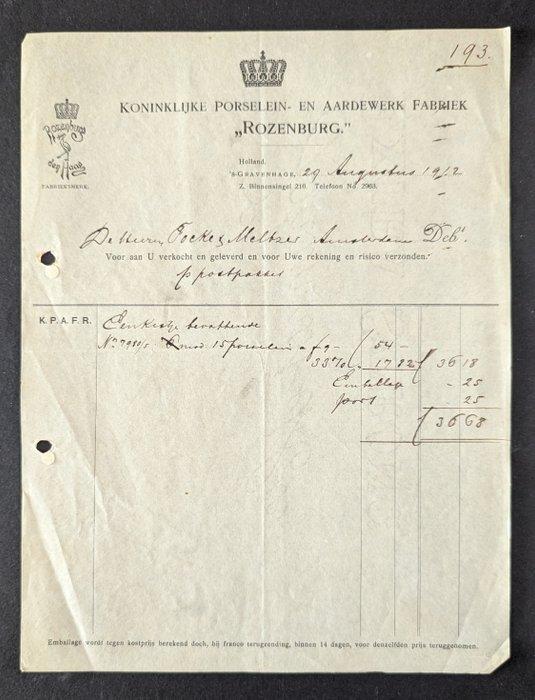 193.
KONINKLIJKE PORSELEIN- EN AARDEWERK FABRIEK
„ROZENBURG."
Rozenburg
den Haag
FABRIEKSMERK.
Holland.
'S-GRAVENHAGE, 29 Augustus 1912
Z. Binnensingel 216. Telefoon No. 2963.
De Heeren Focke & Meltzer Amsterdam Deb.
Voor aan U verkocht en geleverd en voor Uwe rekening en risico verzonden.
p postpakket
K. P. A. F. R.
Een Kistje bevattende
No mod. 15 porselein a f 9- 54 -
33% 17 82 36 18
Emballage - 25
port 25
36 68
Emballage wordt tegen kostprijs berekend doch, bij franco terugzending, binnen 14 dagen, voor denzelfden prijs teruggenomen.